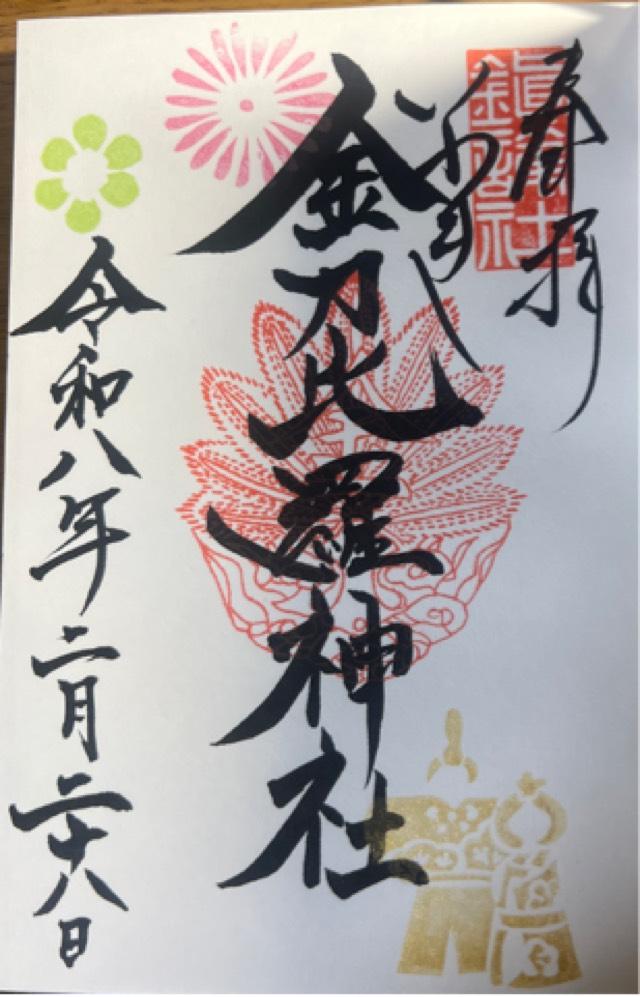 奉拝
金刀比羅神社
令和八年二月二十八日